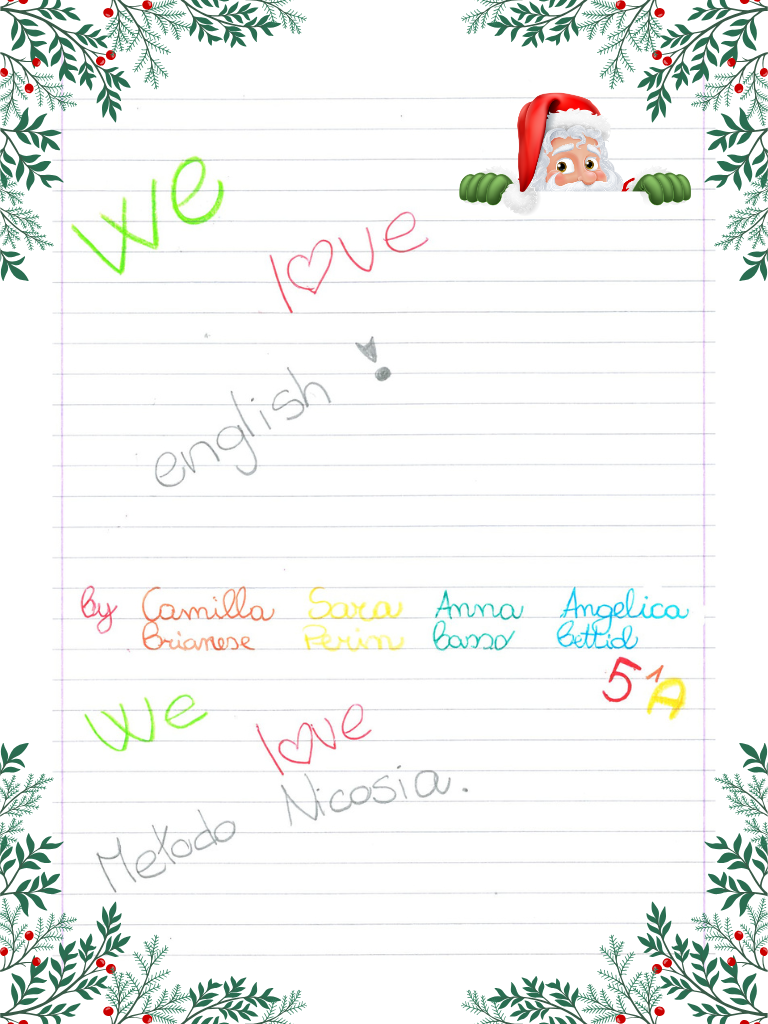 We
love
english!
by Camilla Sara Anna Angelica
Brianese Perin Basso Bettid
5^A
We
love
Metodo Nicosia.